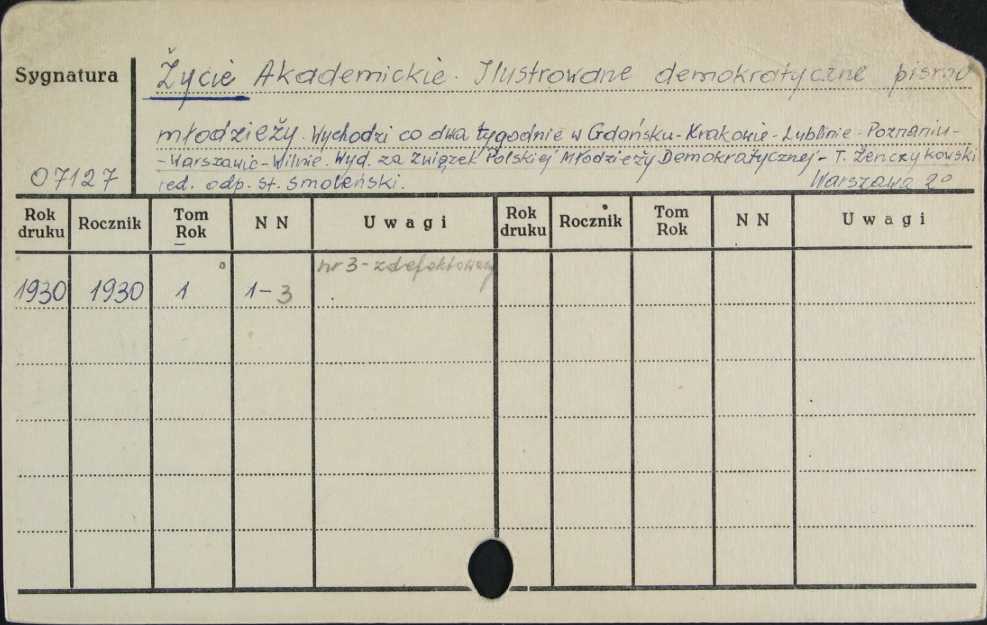 Sygnatura
Życie Akademickie. Ilustrowane demokratyczne pismo
młodzieży. Wychodzi co dwa tygodnie w Gdańsku-Krakowie-Lublinie-Poznaniu-
-Warszawie-Wilnie. Wyd. za Związek Polskiej Młodzieży Demokratycznej - T. Żenczykowski
07127 red. odp. St. Smoleński. Warszawa 2°
Rok druku Rocznik Tom Rok NN Uwagi Rok druku Rocznik Tom Rok NN Uwagi
nr 3 - zdefektowany
1930 1930 1 1-3